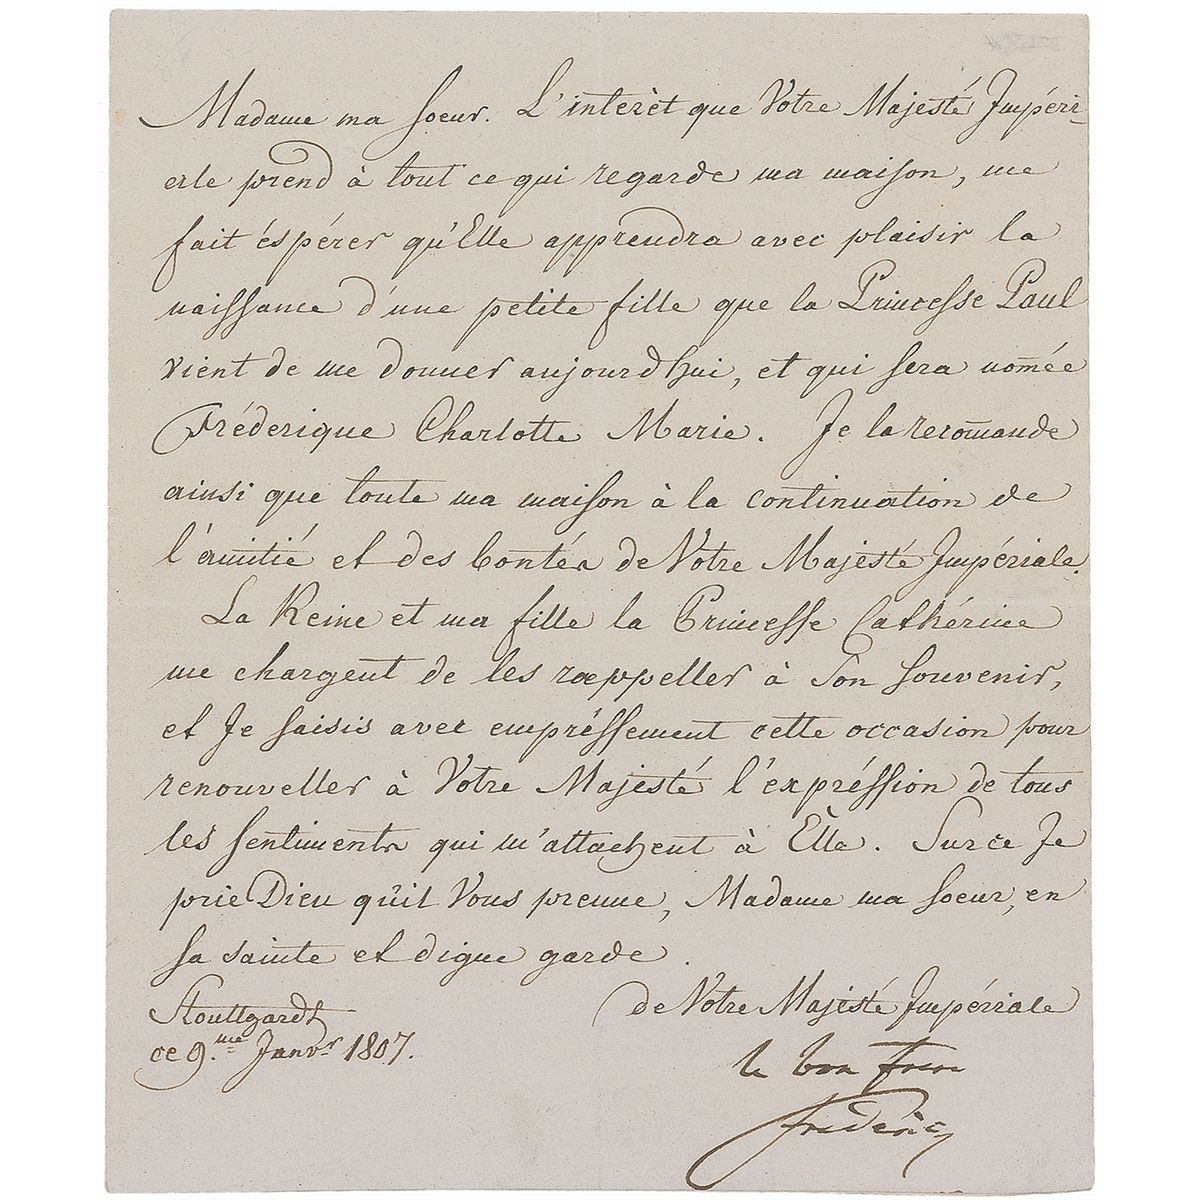 Madame ma soeur. L'interèt que Votre Majesté Impéri-
ale prend à tout ce qui regarde ma maison, me
fait éspérer qu'Elle apprendra avec plaisir la
naissance d'une petite fille que la Princesse Paul
vient de me donner aujourdhui, et qui sera nom̄ée
Fréderique Charlotte Marie. Je la recom̄ande
ainsi que toute ma maison à la continuation de
l'amitié et des bontés de Votre Majesté Impériale.
La Reine et ma fille la Princesse Cathérine
me chargent de les rappeller à Son souvenir,
et Je saisis avec empréssement cette occasion pour
renouveller à Votre Majesté l'expréssion de tous
les sentiments qui m'attachent à Èlle. Surce Je
prie Dieu qu'il Vous prenne, Madame ma soeur, en
sa sainte et digne garde.
de Votre Majésté Impériale
Stouttgardt
ce 9.me Janvr 1807.
le bon frere
Frederic